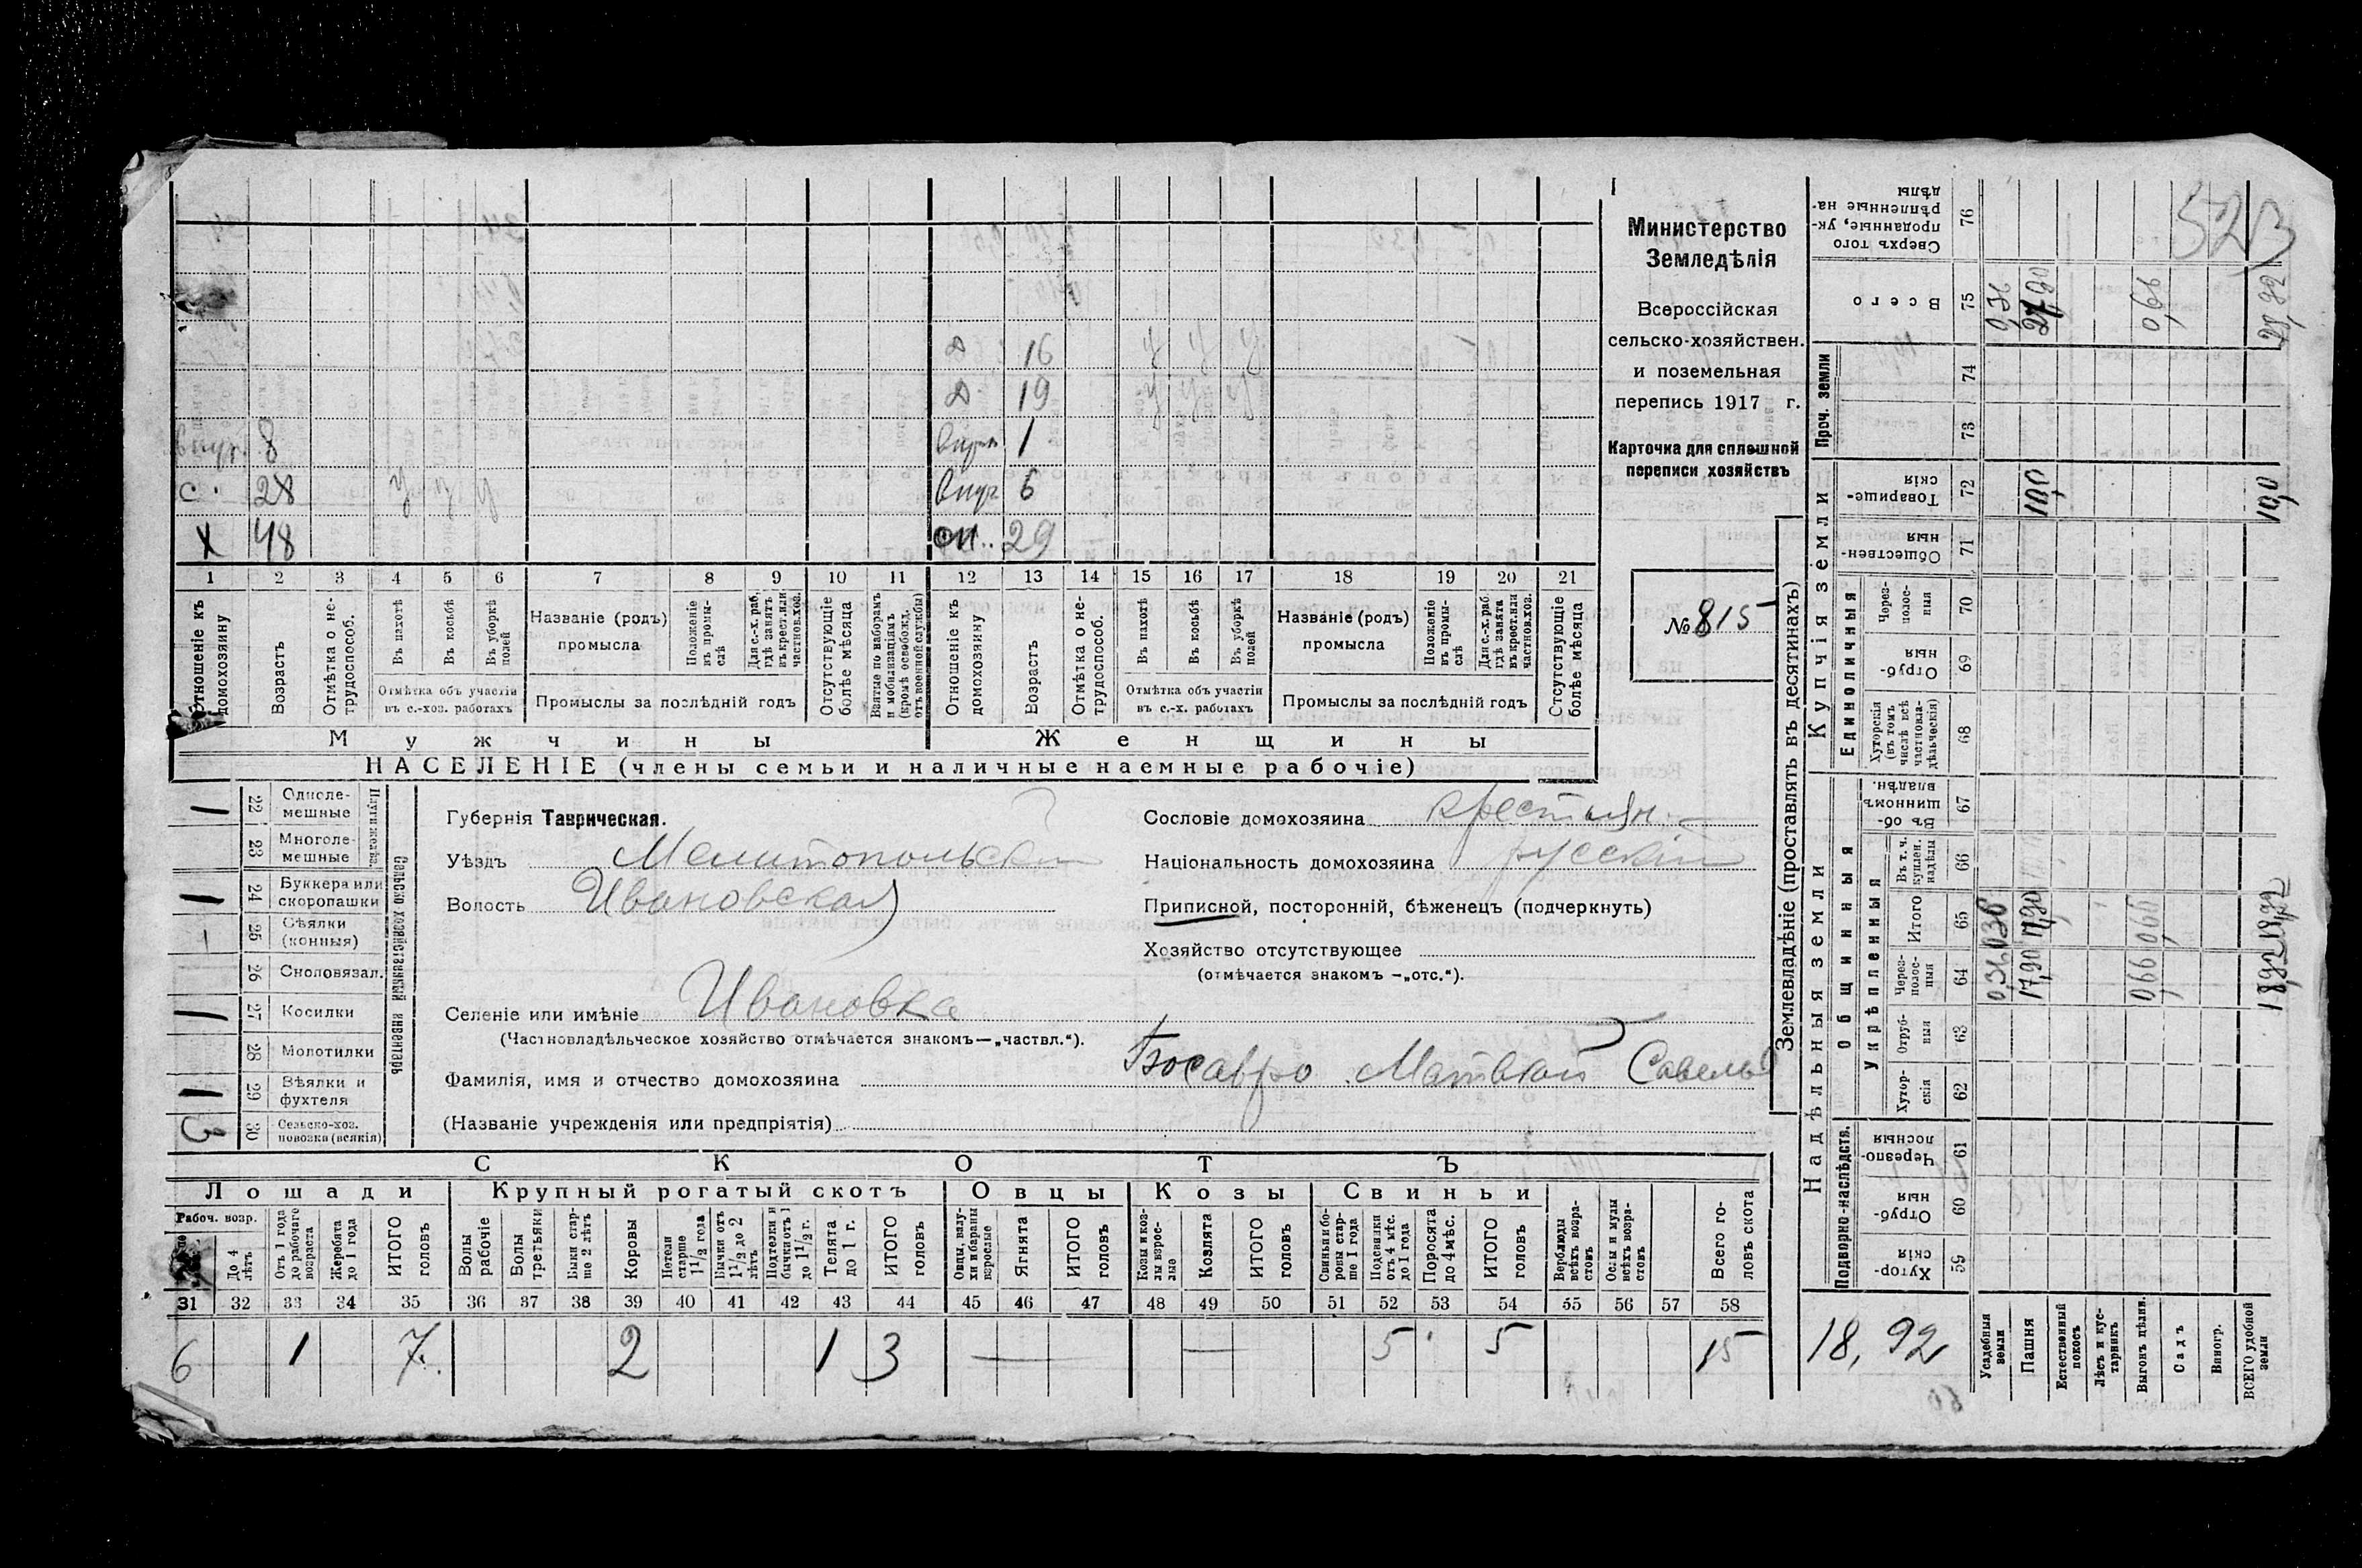 523
Министерство
Земледѣлія
Всероссійская
сельско-хозяйствен.
и поземельная
перепись 1917 г.
Карточка для сплошной
переписи хозяйствъ
№ 815
16 у у у
19 у у у
внук. 8 внучк. 1
с. 28 у у у внук 6
х 48 сн. 29
1 2 3 4 5 6 7 8 9 10 11 12 13 14 15 16 17 18 19 20 21
Отношеніе къ домохозяину
Возрастъ
Отмѣтка о не-трудоспособ.
Въ пахотѣ
Въ косьбѣ
Въ уборкѣ полей
Отмѣтка объ участіи въ с.-хоз. работахъ
Названіе (родъ) промысла
Положеніе въ промы-слѣ
Для с.-х. раб. гдѣ занятъ въ крест. или частнов. хоз.
Промыслы за послѣдній годъ
Отсутствующіе болѣе мѣсяца
Взятые по наборамъ и мобилизаціямъ (кромѣ освобожд. отъ военной службы)
Отношеніе къ домохозяину
Возрастъ
Отмѣтка о не-трудоспособ.
Въ пахотѣ
Въ косьбѣ
Въ уборкѣ полей
Отмѣтка объ участіи въ с.-х. работахъ
Названіе (родъ) промысла
Положеніе въ промы-слѣ
Для с.-х. раб. гдѣ занята въ крест. или частнов. хоз.
Промыслы за послѣдній годъ
Отсутствующіе болѣе мѣсяца
Мужчины Женщины
НАСЕЛЕНІЕ (члены семьи и наличные наемные рабочіе)
Сельско хозяйственный инвентарь
Плуги желѣз.
1 22 Одноле-мешные
23 Многоле-мешные
1 24 Буккера или скоропашки
– 25 Сѣялки (конныя)
26 Сноповязал.
1 27 Косилки
28 Молотилки
1 29 Вѣялки и фухтеля
3 30 Сельско-хоз. повозка (всякія)
Губернія Таврическая.
Уѣздъ Мелитопольскій
Волость Ивановская
Селеніе или имѣніе Ивановка
(Частновладѣльческое хозяйство отмѣчается знакомъ—„частвл.“).
Фамилія, имя и отчество домохозяина Матвѣй Савельев
(Названіе учрежденія или предпріятія)
Сословіе домохозяина крестьян.
Національность домохозяина русскій
Приписной, посторонній, бѣженецъ (подчеркнуть)
Хозяйство отсутствующее
(отмѣчается знакомъ —„отс.“).
СКОТЪ
Лошади Крупный рогатый скотъ Овцы Козы Свиньи
Рабоч. возр.
До 4 лѣтъ
Отъ 1 года до рабочаго возраста
Жеребята до 1 года
ИТОГО головъ
Волы рабочіе
Волы третьяки
Быки стар-ше 2 лѣтъ
Коровы
Нетели старше 1½ года
Бычки отъ 1½ до 2 лѣтъ
Подтелки и бычки отъ 1 до 1½ г.
Телята до 1 г.
ИТОГО головъ
Овцы, валу-хи и бараны взрослые
Ягнята
ИТОГО головъ
Козы и коз-лы взрос-лые
Козлята
ИТОГО головъ
Свиньи и бо-ровы стар-ше 1 года
Подсвинки отъ 4 мѣс. до 1 года
Поросята до 4 мѣс.
ИТОГО головъ
Верблюды всѣхъ возра-стовъ
Ослы и мулы всѣхъ возра-стовъ
Всего го-ловъ скота
31 32 33 34 35 36 37 38 39 40 41 42 43 44 45 46 47 48 49 50 51 52 53 54 55 56 57 58
6 1 7 2 1 3 — — 5 5 15
Землевладѣніе (проставлять въ десятинахъ)
Надѣльныя земли
Купчія земли
Проч. земли
Подворно-наслѣдств.
Общинныя
Укрѣпленныя
Единоличныя
59 Хутор-скія
60 Отруб-ныя
61 Черезпо-лосныя
62 Хутор-скія
63 Отруб-ныя
64 Через-полос-ныя
65 Итого
66 Въ т. ч. куплен. надѣлы
67 Въ об-щинномъ владѣн.
68 Хуторскія (въ томъ числѣ всѣ частновла-дѣльческія)
69 Отруб-ныя
70 Через-полос-ныя
71 Обществен-ныя
72 Товарище-скія
73
74
75 Всего
76 Сверхъ того проданные, ук-рѣпленные на-дѣлы
18,92
Усадебныя земли 0,36 0,36 0,36
Пашня 17,90 17,90 10,0 27,90
Естественный покосъ
Лѣсъ и кус-тарникъ
Выгонъ дѣлив. 0,66 0,66 0,66
Садъ
Виногр.
ВСЕГО удобной земли 18,92 18,92 10,0 28,92